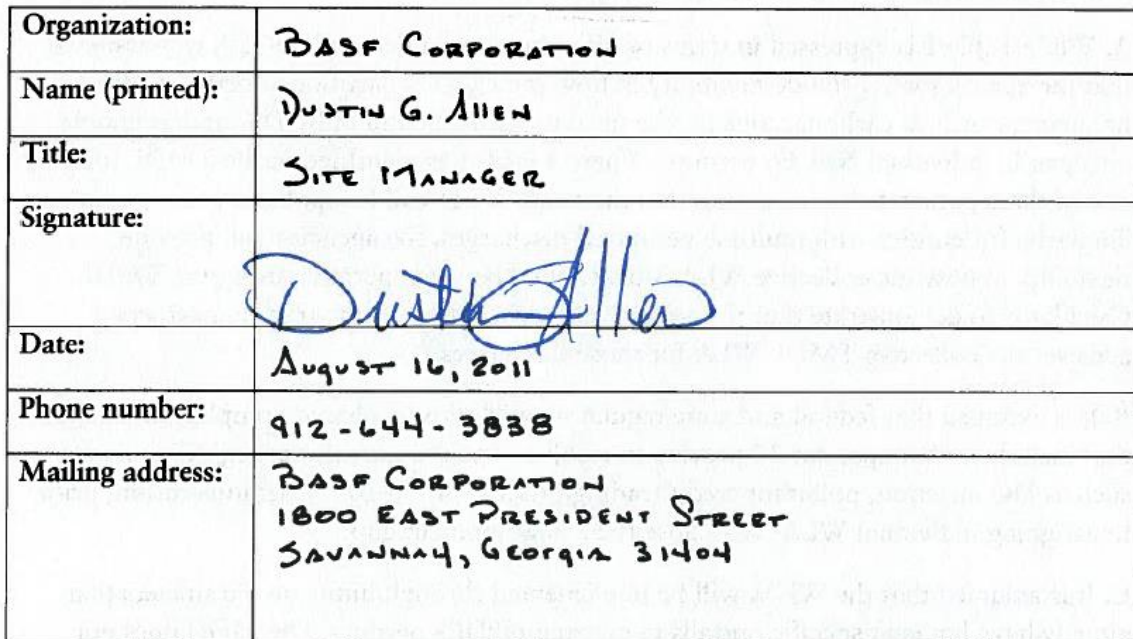 Organization:
BASF CORPORATION
Name (printed):
DUSTIN G. ALLEN
Title:
SITE MANAGER
Signature:
Dustin Allen
Date:
AUGUST 16, 2011
Phone number:
912-644-3838
Mailing address:
BASF CORPORATION
1800 EAST PRESIDENT STREET
SAVANNAH, GEORGIA 31404